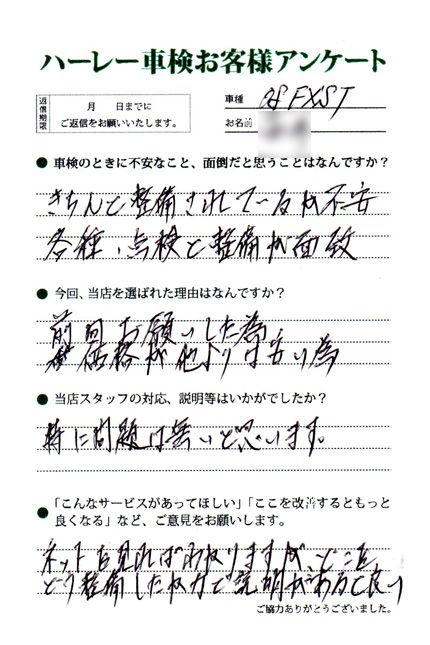 ハーレー車検お客様アンケート
返信期限
月　日までに
ご返信をお願いいたします。
車種 08 FXST
お名前
● 車検のときに不安なこと、面倒だと思うことはなんですか？
きちんと整備されているか不安
各種、点検と整備が面致
● 今回、当店を選ばれた理由はなんですか？
前回お願いした為
価格が他よりは安い為
● 当店スタッフの対応、説明等はいかがでしたか？
特に問題は無いと思います。
● 「こんなサービスがあってほしい」「ここを改善するともっと
良くなる」など、ご意見をお願いします。
ネットを見ればわかりますが、どこを、
どう整備したか力で説明があると良い
ご協力ありがとうございました。